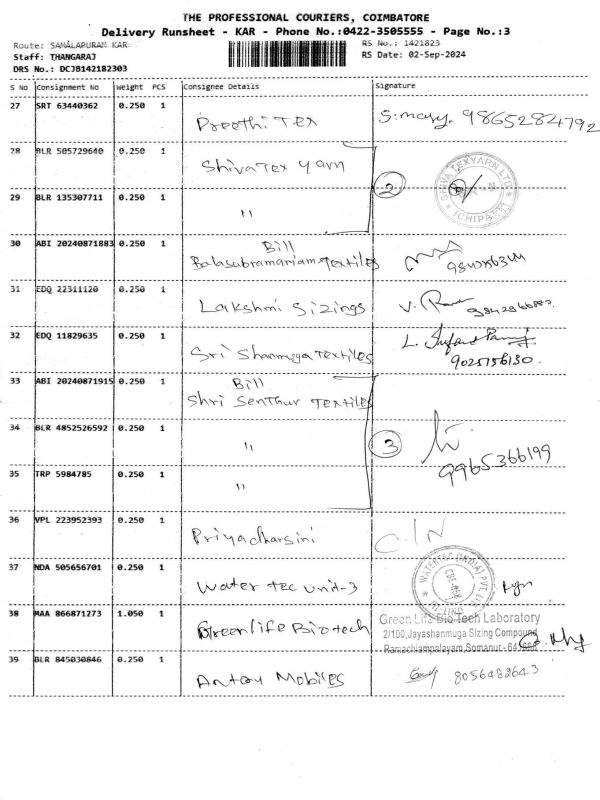 THE PROFESSIONAL COURIERS, COIMBATORE
Delivery Runsheet - KAR - Phone No.:0422-3505555 - Page No.:3
Route: SAMALAPURAM KAR
RS No.: 1421823
Staff: THANGARAJ
RS Date: 02-Sep-2024
DRS No.: DCJB142182303
S No Consignment No Weight PCS Consignee Details Signature
27 SRT 63440362 0.250 1 Preethi Tex S.mary. 9865284792
28 BLR 505729640 0.250 1 Shiva Tex yarn
SHIVA TEXYARN LTD
ICHIPATTI
2
29 BLR 135307711 0.250 1 "
30 ABI 20240871883 0.250 1 Bill
Balasubramaniam Textiles
31 EDQ 22311120 0.250 1 Lakshmi Sizings
32 EDQ 11829635 0.250 1 Sri Shanmuga Textiles 9025756130.
33 ABI 20240871915 0.250 1 Bill
Shri Senthur Textiles
34 BLR 4852526592 0.250 1 "
3
9965366199
35 TRP 5984785 0.250 1 "
36 VPL 223952393 0.250 1 Priyadharsini
37 NDA 505656701 0.250 1 Water tec unit-3
WATERTEC (INDIA) PVT LTD
38 MAA 866871273 1.050 1 Greenlife Biotech
Green Life Bio Tech Laboratory
2/100,Jayashanmuga Sizing Compound
Ramachiampalayam,Somanur -
39 BLR 845030846 0.250 1 Antony Mobiles 8056482643